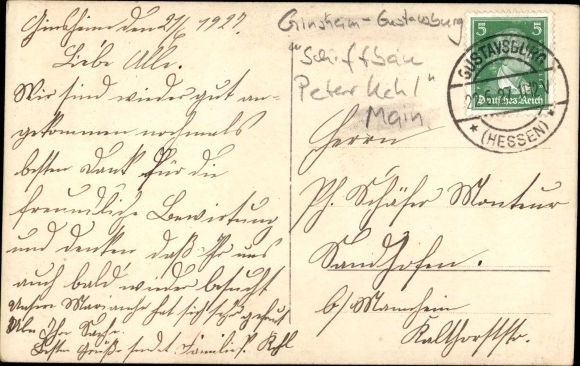 Ginsheim den 21/6 1927.
Liebe Alle.
Wir sind wieder gut an-
gekommen nochmals
besten Dank für die
freundliche Bewirtung
und denken daß Ihr uns
auch bald wieder besucht
Unsere Marianne hat sich sehr gefreut
Ihre Sache.
Besten Grüße sendet Familie Kehl
Ginsheim-Gustavsburg
"Schiffbau
Peter Kehl"
Main
5 5
Deutsches Reich
GUSTAVSBURG
* (HESSEN) *
Herrn
Ph. Schäfer Monteur
Sandhofen.
b/ Mannheim
Kalthorststr.